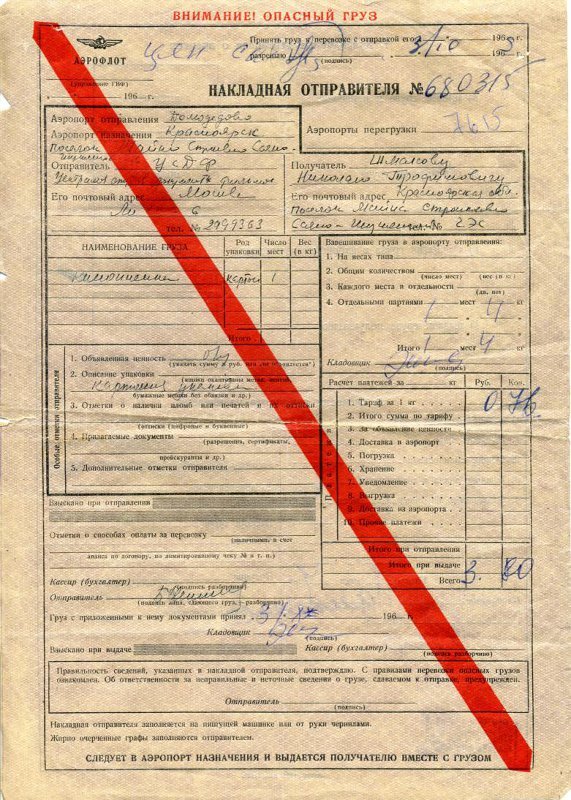 ВНИМАНИЕ! ОПАСНЫЙ ГРУЗ
АЭРОФЛОТ
(управление ГВФ)
196 г.
Принять груз к перевозке с отправкой его 3/10 1965
(подпись) 196 г.
НАКЛАДНАЯ ОТПРАВИТЕЛЯ № 680315
7615
Аэропорт отправления Домодедово
Аэропорт назначения Красноярск
Аэропорты перегрузки
Отправитель
Его почтовый адрес Москва
тел. № 2999363
Получатель Шмакову
Николаю Трофимовичу
Его почтовый адрес Красноярская
поселок Майна
НАИМЕНОВАНИЕ ГРУЗА
Род упаковки
Число мест
Вес (в кг)
1
Итого
Взвешивание груза в аэропорту отправления:
1. На весах типа
2. Общим количеством
(число мест) (вес в кг)
3. Каждого места в отдельности
(др. вес)
4. Отдельными партиями
1 мест 4 кг
Итого 1 мест 4 кг
Кладовщик
(подпись)
Особые отметки отправителя
1. Объявленная ценность
2. Описание упаковки
бумажные мешки без обвязки и др.)
3. Отметки о наличии пломб или печатей и их оттиски
(оттиски цифровые и буквенные)
4. Прилагаемые документы
(разрешения, сертификаты,
прейскуранты и др.)
5. Дополнительные отметки отправителя
Расчет платежей за кг Руб. Коп.
Платежи
1. Тариф за 1 кг 0 76
2. Итого сумма по тарифу
3. За объявление ценности
4. Доставка в аэропорт
5. Погрузка
6. Хранение
7. Уведомление
8. Выгрузка
9. Доставка из аэропорта
10. Прочие платежи
Итого при отправлении
Итого при выдаче
Всего 3. 80
Взыскано при отправлении
Отметки о способах оплаты за перевозку
(наличными, в счет
аванса по договору, по лимитированному чеку № и т. п.)
Кассир (бухгалтер)
(подпись разборчиво)
Отправитель
(подпись лица, сдающего груз, — разборчиво)
Груз с приложенными к нему документами принял 196 г.
Кладовщик
(подпись)
Взыскано при выдаче
Кассир (бухгалтер)
(подпись разборчиво)
Правильность сведений, указанных в накладной отправителя, подтверждаю. С правилами перевозки опасных грузов
ознакомлен. Об ответственности за неправильные и неточные сведения о грузе, сдаваемом к отправке, предупрежден.
Отправитель
(подпись)
Накладная отправителя заполняется на пишущей машинке или от руки чернилами.
Жирно очерченные графы заполняются отправителем.
СЛЕДУЕТ В АЭРОПОРТ НАЗНАЧЕНИЯ И ВЫДАЕТСЯ ПОЛУЧАТЕЛЮ ВМЕСТЕ С ГРУЗОМ